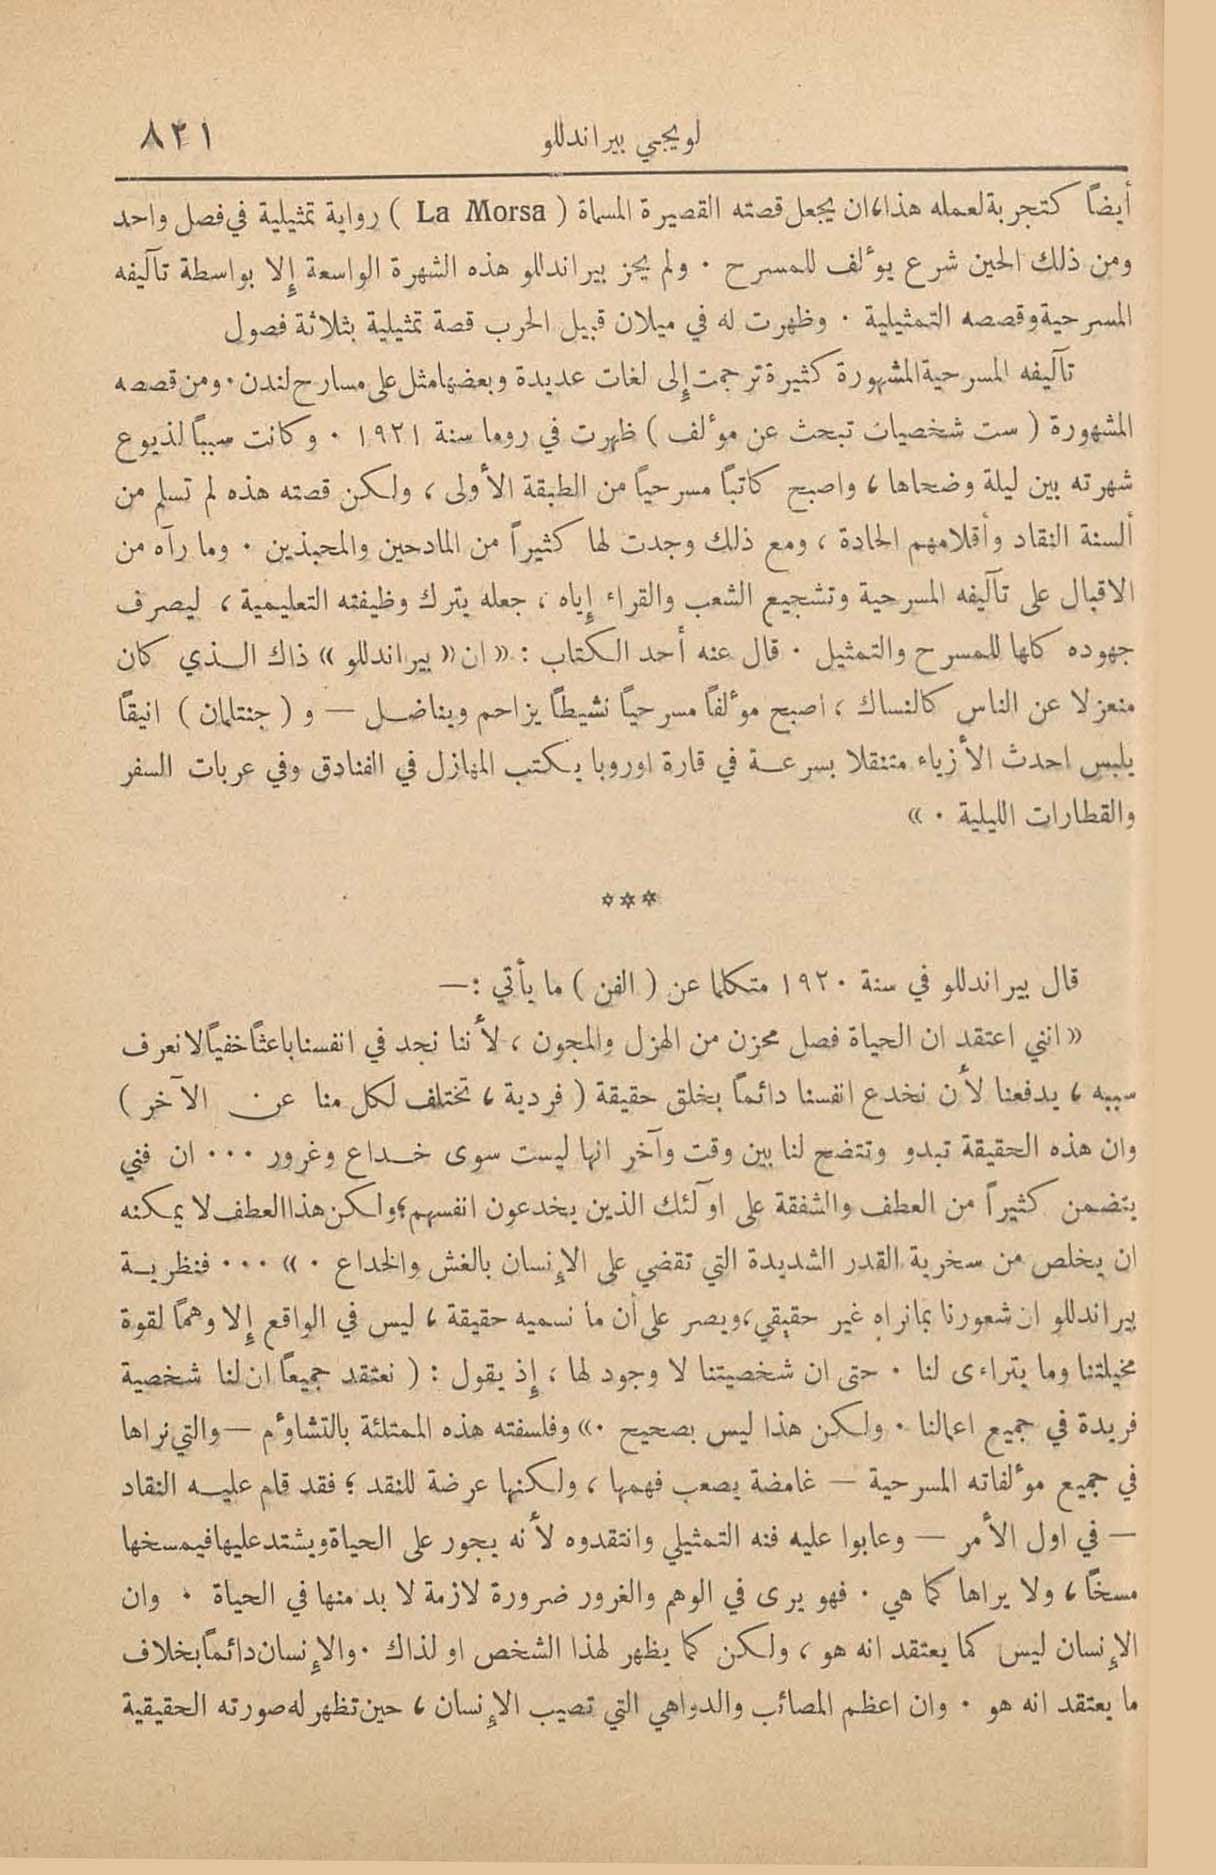 لويجي بيراندللو
٨٢١
أيضاً كتجربة لعمله هذا، ان يجعل قصته القصيرة المسماة ( La Morsa ) رواية تمثيلية في فصل واحد
ومن ذلك الحين شرع يؤلف للمسرح . ولم يحز بيراندللو هذه الشهرة الواسعة إلا بواسطة تآليفه
المسرحية وقصصه التمثيلية . وظهرت له في ميلان قبيل الحرب قصة تمثيلية بثلاثة فصول
تآليفه المسرحية المشهورة كثيرة ترجمت إلى لغات عديدة وبعضها مثل على مسارح لندن . ومن قصصه
المشهورة ( ست شخصيات تبحث عن مؤلف ) ظهرت في روما سنة ١٩٢١ . وكانت سبباً لذيوع
شهرته بين ليلة وضحاها ، واصبح كاتباً مسرحياً من الطبقة الأولى ، ولكن قصته هذه لم تسلم من
ألسنة النقاد وأقلامهم الحادة ، ومع ذلك وجدت لها كثيراً من المادحين والمحبذين . وما رآه من
الاقبال على تآليفه المسرحية وتشجيع الشعب والقراء إياه ، جعله يترك وظيفته التعليمية ، ليصرف
جهوده كلها للمسرح والتمثيل . قال عنه أحد الكتاب : « ان « بيراندللو » ذاك الذي كان
منعزلا عن الناس كالنساك ، اصبح مؤلفاً مسرحياً نشيطاً يزاحم ويناضل — و ( جنتلمان ) انيقاً
يلبس احدث الأزياء متنقلا بسرعة في قارة اوروبا يكتب المهازل في الفنادق وفي عربات السفر
والقطارات الليلية . »
***
قال بيراندللو في سنة ١٩٢٠ متكلما عن ( الفن ) ما يأتي :—
« انني اعتقد ان الحياة فصل محزن من الهزل والمجون ، لأننا نجد في انفسنا باعثاً خفياً لا نعرف
سببه ، يدفعنا لأن نخدع انفسنا دائماً بخلق حقيقة ( فردية ، تختلف لكل منا عن الآخر )
وان هذه الحقيقة تبدو وتتضح لنا بين وقت وآخر انها ليست سوى خداع وغرور ... ان فني
يتضمن كثيراً من العطف والشفقة على اولئك الذين يخدعون انفسهم ؛ ولكن هذا العطف لا يمكنه
ان يخلص من سخرية القدر الشديدة التي تقضي على الإنسان بالغش والخداع . » ... فنظرية
بيراندللو ان شعورنا بما نراه غير حقيقي، ويصر على أن ما نسميه حقيقة ، ليس في الواقع إلا وهماً لقوة
مخيلتنا وما يتراءى لنا . حتى ان شخصيتنا لا وجود لها ، إذ يقول : ( نعتقد جميعاً ان لنا شخصية
فريدة في جميع اعمالنا . ولكن هذا ليس بصحيح .» وفلسفته هذه الممتلئة بالتشاؤم — والتي نراها
في جميع مؤلفاته المسرحية — غامضة يصعب فهمها ، ولكنها عرضة للنقد ؛ فقد قام عليه النقاد
— في اول الأمر — وعابوا عليه فنه التمثيلي وانتقدوه لأنه يجور على الحياة ويشتد عليها فيمسخها
مسخاً ، ولا يراها كما هي . فهو يرى في الوهم والغرور ضرورة لازمة لا بد منها في الحياة . وان
الإنسان ليس كما يعتقد انه هو ، ولكن كما يظهر لهذا الشخص او لذاك . والإنسان دائماً بخلاف
ما يعتقد انه هو . وان اعظم المصائب والدواهي التي تصيب الإنسان ، حين تظهر له صورته الحقيقية